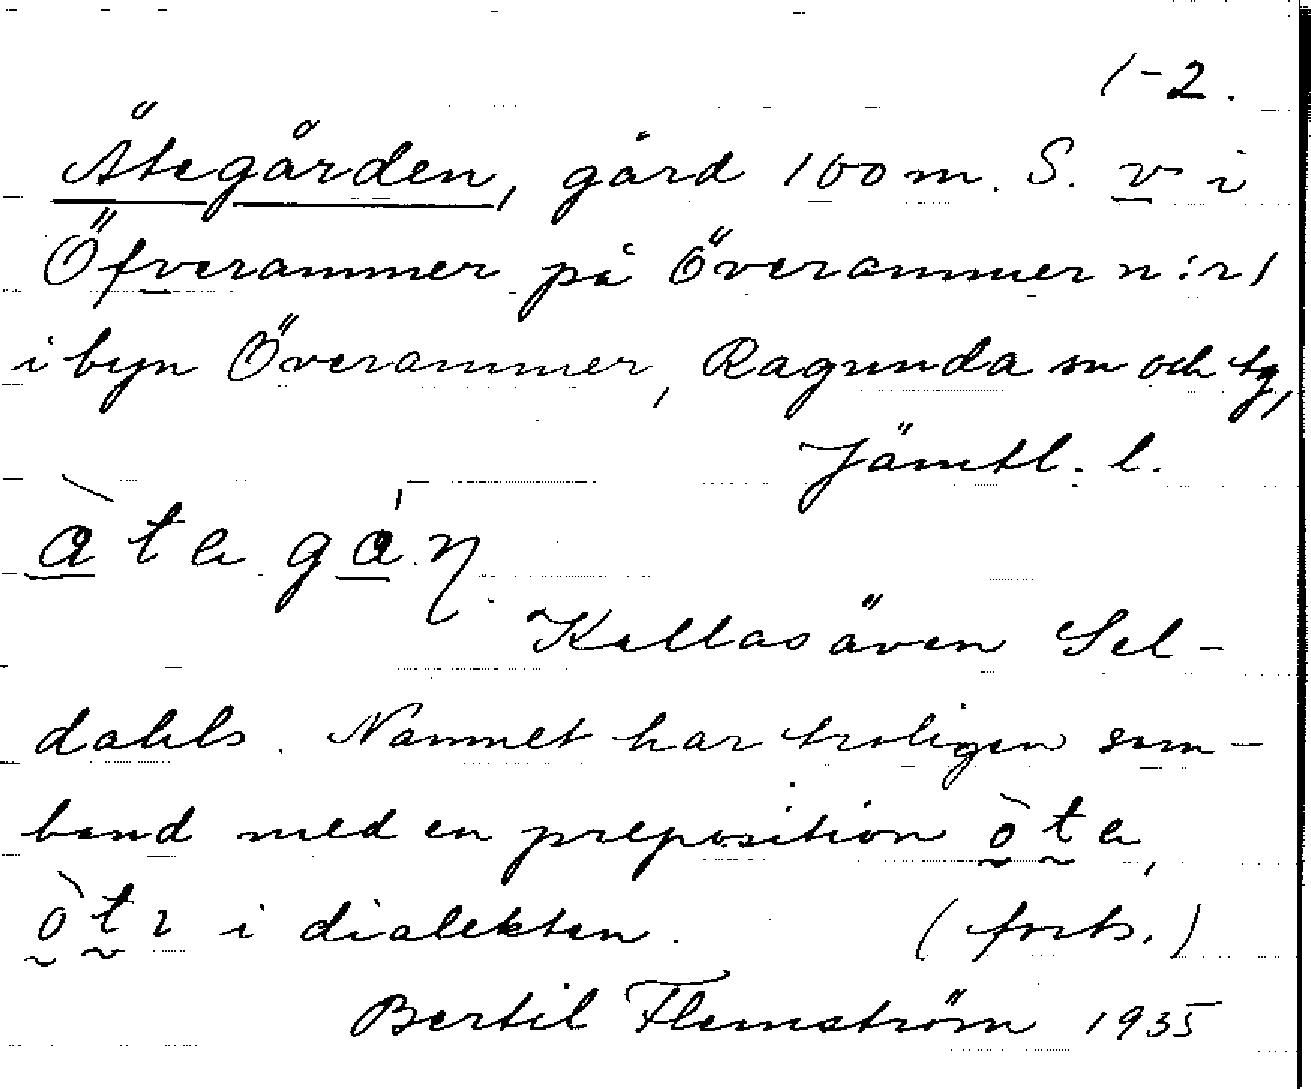 1-2.
Åtegården, gård 100 m. S. v i
Öfverammer på Överammer n:r 1
i byn Överammer, Ragunda sn och tg,
Jämtl. l.
àtagá.ŋ
Kallas även Sel-
dahls. Namnet har troligen sam-
band med en preposition òta,
òtı i dialekten. (forts.)
Bertil Flemström 1935